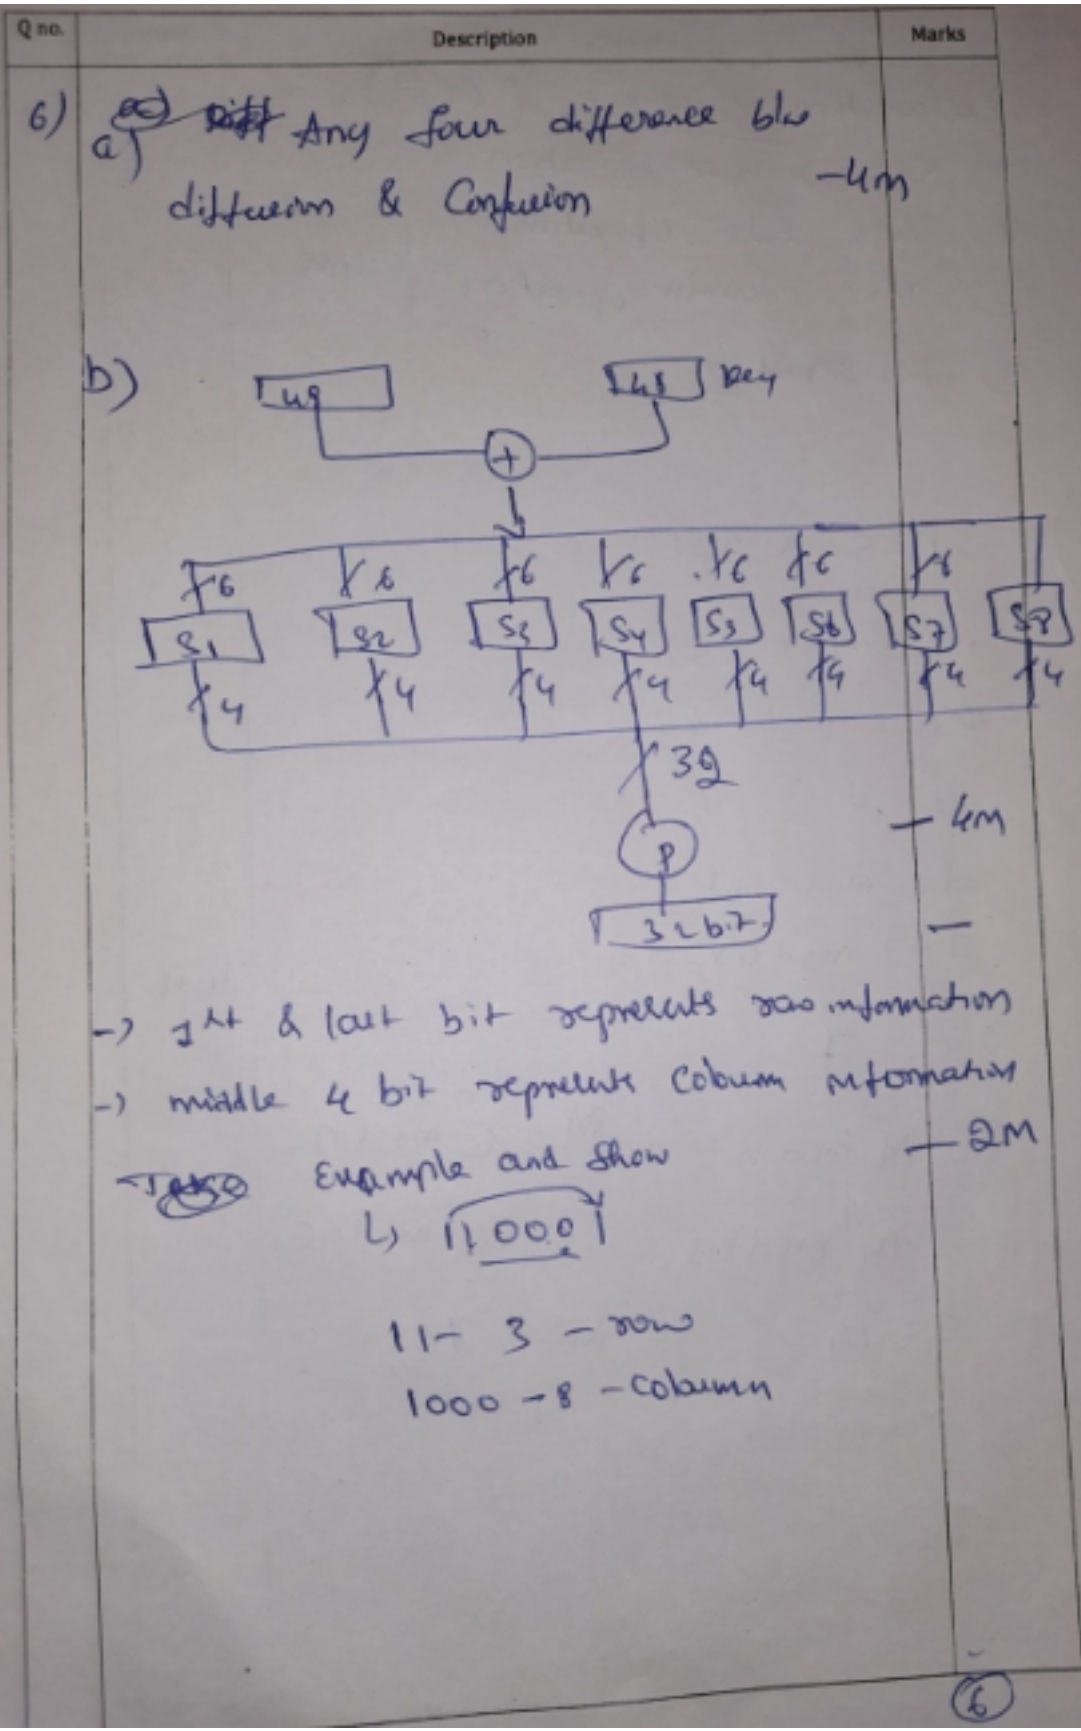 Q no. Description Marks
6) a) Any four difference b/w
diffusion & Confusion -4m
b)
48 48 key
+
6 6 6 6 6 6 6
S1 S2 S3 S4 S5 S6 S7 S8
4 4 4 4 4 4 4 4
32
- 4m
P
32 bit
-
-> 1st & last bit represents row information
-> middle 4 bit represents Column information
- 2M
Example and show
↳ 110001
11- 3 - row
1000 - 8 - Column
6